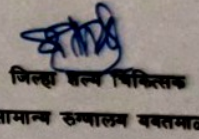 जिल्हा शल्य चिकित्सक
सामान्य रुग्णालय यवतमाळ